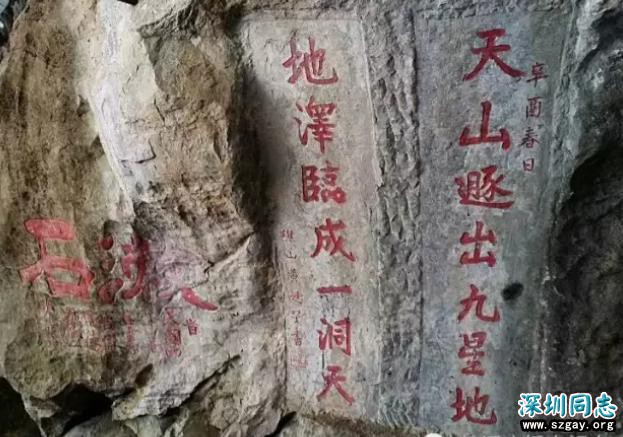 天山遯出九星地
辛酉春日
地澤臨成一洞天
漱石
深圳同志
www.szgay.org